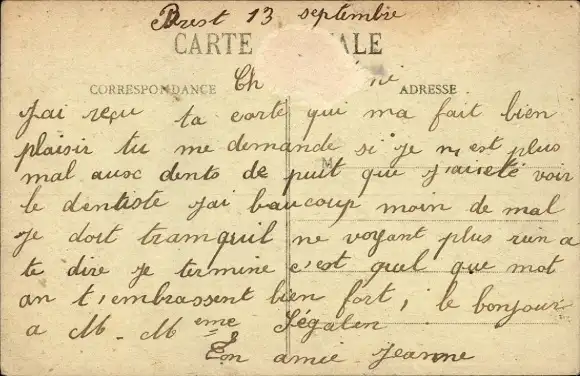 Brest 13 septembre
CARTE ALE
CORRESPONDANCE Ch ADRESSE
J'ai reçu ta carte qui ma fait bien
plaisir tu me demande si je n'est plus
M
mal ausc dents de puit que j'aiété voir
le dentiste j'ai beaucoup moin de mal
je dort tramquil ne voyant plus rien a
te dire je termine c'est quel que mot
an t'embrassent bien fort, le bonjour
a M. Meme Ségalen
Ton amie Jeanne